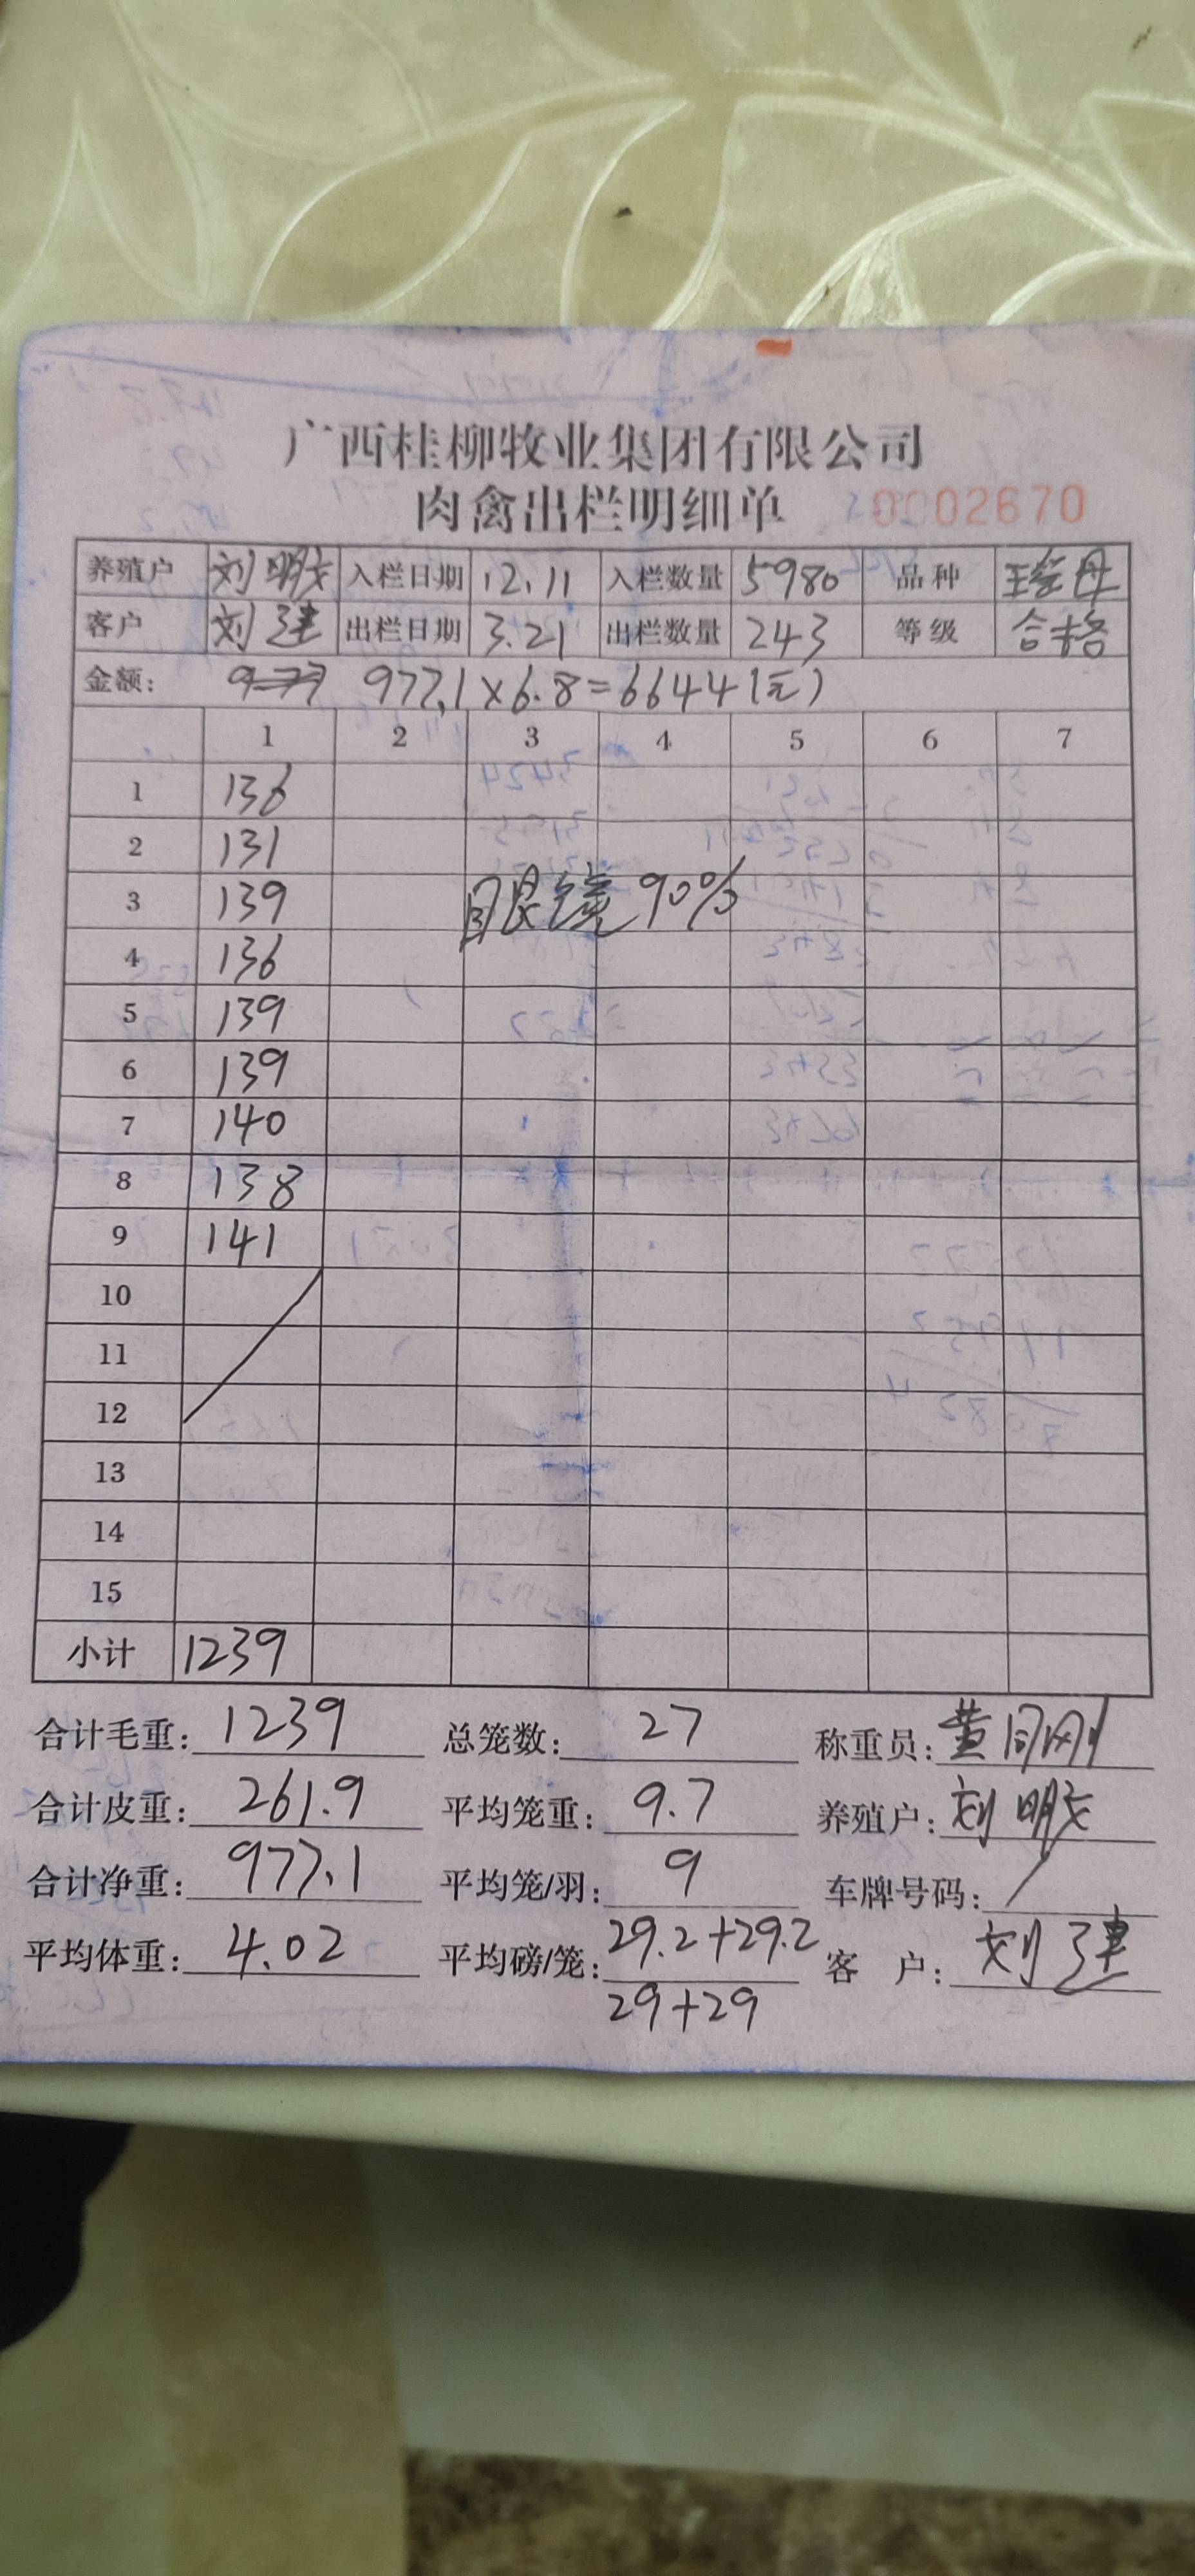 广西桂柳牧业集团有限公司
肉禽出栏明细单 0002670
养殖户 刘明 入栏日期 12.11 入栏数量 5980 品种
客户 刘建 出栏日期 3.21 出栏数量 243 等级 合格
金额: 977.1×6.8=6644(元)
1 2 3 4 5 6 7
1 136
2 131
3 139
眼镜90%
4 136
5 139
6 139
7 140
8 138
9 141
10
11
12
13
14
15
小计 1239
合计毛重: 1239 总笼数: 27 称重员: 黄
合计皮重: 261.9 平均笼重: 9.7 养殖户: 刘明
合计净重: 977.1 平均笼/羽: 9 车牌号码: /
平均体重: 4.02 平均磅/笼: 29.2+29.2 客户: 刘建
29+29